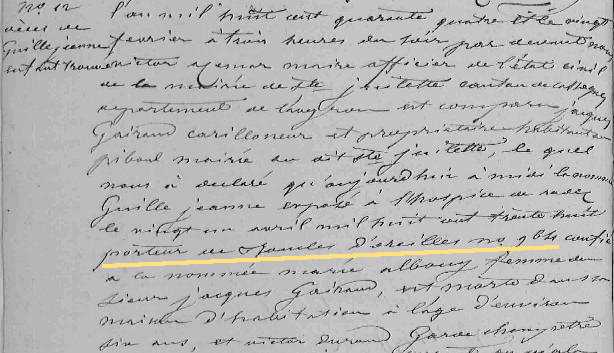 No 12
décès de
Guille jeanne
enfant trouvé
l'an mil huit cent quarante quatre et le vingt
fevrier à trois heures du soir par devant nous
victor maire officier de l'état civil
de la mairie de ste juliette canton de cassagnes
departement de l'aveyron est comparu jacques
Gairaud carilloneur et propriétaire habitant au
piboul mairie du dit ste juliette, le quel
nous à declaré qu'aujourdhuy à midi la nommée
Guille jeanne exposé à l'hospice de rodez
le vingt un avril mil huit cent trente huit
porteur de Boucles d'oreilles no 9 bis confié
a la nommée marie albouy femme du
sieur jacques Gairaud, est morte dans sa
maison d'habitation à l'age d'environ
six ans, et victor durand Garde champetre